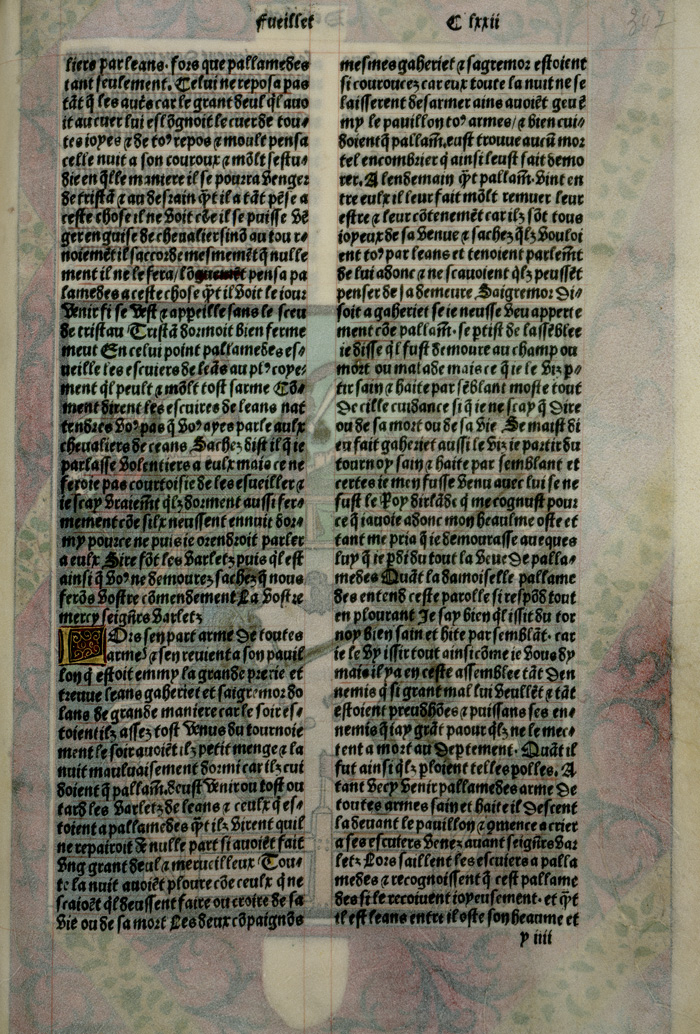 Fueillet C lxxii
liers par leans. fors que pallamedes
tant seulement. Celui ne reposa pas
tāt q̄ les autẽs car le grant deul q̄l auo
it au cuer lui eslōgnoit le cuer de tou⸗
tes ioyes ⁊ de to⁹ repos ⁊ moult pensa
celle nuit a son couroux ⁊ mōlt sestu⸗
die en q̄lle maniere il se pourra venger
de tristā ⁊ au desrain q̄t il a tāt pēse a
ceste chose il ne voit cōe il se puisse vē
ger en guise de cheualier sinō au tour⸗
noiemēt il saccorde mesmemēt q̄ nulle
ment il ne le fera/ lō pensa pa
lamedes a ceste chose q̄t il voit le iour
venir si se vest ⁊ appeille sans le sceu
de tristan Tristā dormoit bien ferme
ment En celui point pallamedes es⸗
ueille les escuiers de leās au pl⁹ coye⸗
ment q̄l peult ⁊ mōlt tost sarme Cō⸗
ment dirent les escuires de leans nat
tendres vo⁹ pas q̄ vo⁹ ayes parle aulx
cheualiers de ceans Sachez dist il q̄ ie
parlasse volentiers a eulx mais ce ne
feroie pas courtoisie de les esueiller ⁊
ie scay vraiemēt q̄lz dorment aussi fer⸗
mement cōe silx neussent ennuit dor⸗
my pource ne puis ie orendroit parler
a eulx Sire fōt les varletz puis q̄l est
ainsi q̄ vo⁹ ne demourez sachez q̄ nous
ferōs vostre cōmendement La vostre
mercy seignrs varletz
Ors sen part arme de toutes
armes ⁊ sen reuient a son pauil
lon q̄ estoit emmy la grande prerie et
treuue leans gaheriet et saigremor do
lans de grande maniere car le soir es⸗
toient ilz assez tost venus du tournoie
ment le soir auoiēt ilz petit menge ⁊ la
nuit mauluaisement dormi car ilz cui
doient q̄ pallam̄. deust venir ou tost ou
tard les varletz de leans ⁊ ceulx q̄ es⸗
toient a pallamedes q̄t ilz virent quil
ne repairoit de nulle part si auoiēt fait
vng grant deul ⁊ merueilleux Tou⸗
te la nuit auoiēt ploure cōe ceulx q̄ ne
scaioēt q̄l deussent faire ou croire de sa
vie ou de sa mort Les deux cōpaignōs
mesmes gaheriet ⁊ sagremor estoient
si couroucez car eux toute la nuit ne se
laisserent desarmer ains auoiēt geu ē
my le pauillon to⁹ armes/ ⁊ bien cui⸗
doient q̄ pallam̄. eust trouue aucū mor
tel encombrier q̄ ainsi leust fait demo
rer. A lendemain q̄t pallam̄. vint en
tre eulx il leur fait mōlt remuer leur
estre ⁊ leur cōtenemēt car ilz sōt tous
ioyeux de sa venue ⁊ sachez q̄lz vouloi
ent to⁹ par leans et tenoient parlemt̄
de lui adonc ⁊ ne scauoient q̄lz peussēt
penser de sa demeure, Saigremor di⸗
soit a gaheriet se ie neusse veu apperte
ment cōe pallam̄. se ptist de lassēblee
ie disse q̄l fust demoure au champ ou
mort ou malade mais ce q̄ ie le viz p⸗
tir sain ⁊ haite par sēblant moste tout
de cille cuidance si q̄ ie ne scay q̄ dire
ou de sa mort ou de sa vie Se maist di
eu fait gaheriet aussi le viz ie partir du
tournoy sain ⁊ haite par semblant et
certes ie men fusse venu auec lui se ne
fust le Roy dirlāde q̄ me cognust pour
ce q̄ iauoie adonc mon heaulme oste et
tant me pria q̄ ie demourasse auecques
luy q̄ ie p̄di du tout la veue de palla⸗
medes Quāt la damoiselle pallame
des entend ceste parolle si respōd tout
en plourant Ie say bien q̄l issit du tor
noy bien sain et hite par semblāt. car
ie le vy issir tout ainsi cōme ie vous dy
mais il y a en ceste assemblee tāt den
nemis q̄ si grant mal lui veullēt ⁊ tāt
estoient preudhōes ⁊ puissans ses en⸗
nemis q̄ iay grāt paour q̄lz ne le mec⸗
tent a mort au deptement. Quāt il
fut ainsi q̄lz ploient telles polles. A
tant vecy venir pallamedes arme de
toutes armes sain et haite il descent
la deuant le pauillon ⁊ ꝯmence a crier
a ses escuiers venez auant seignrs var
letz Lors saillent les escuiers a palla
medes ⁊ recognoissent q̄ cest pallame
des si le recoiuent ioyeusement. et q̄t
il est leans entre il oste son heaume et
y iiii